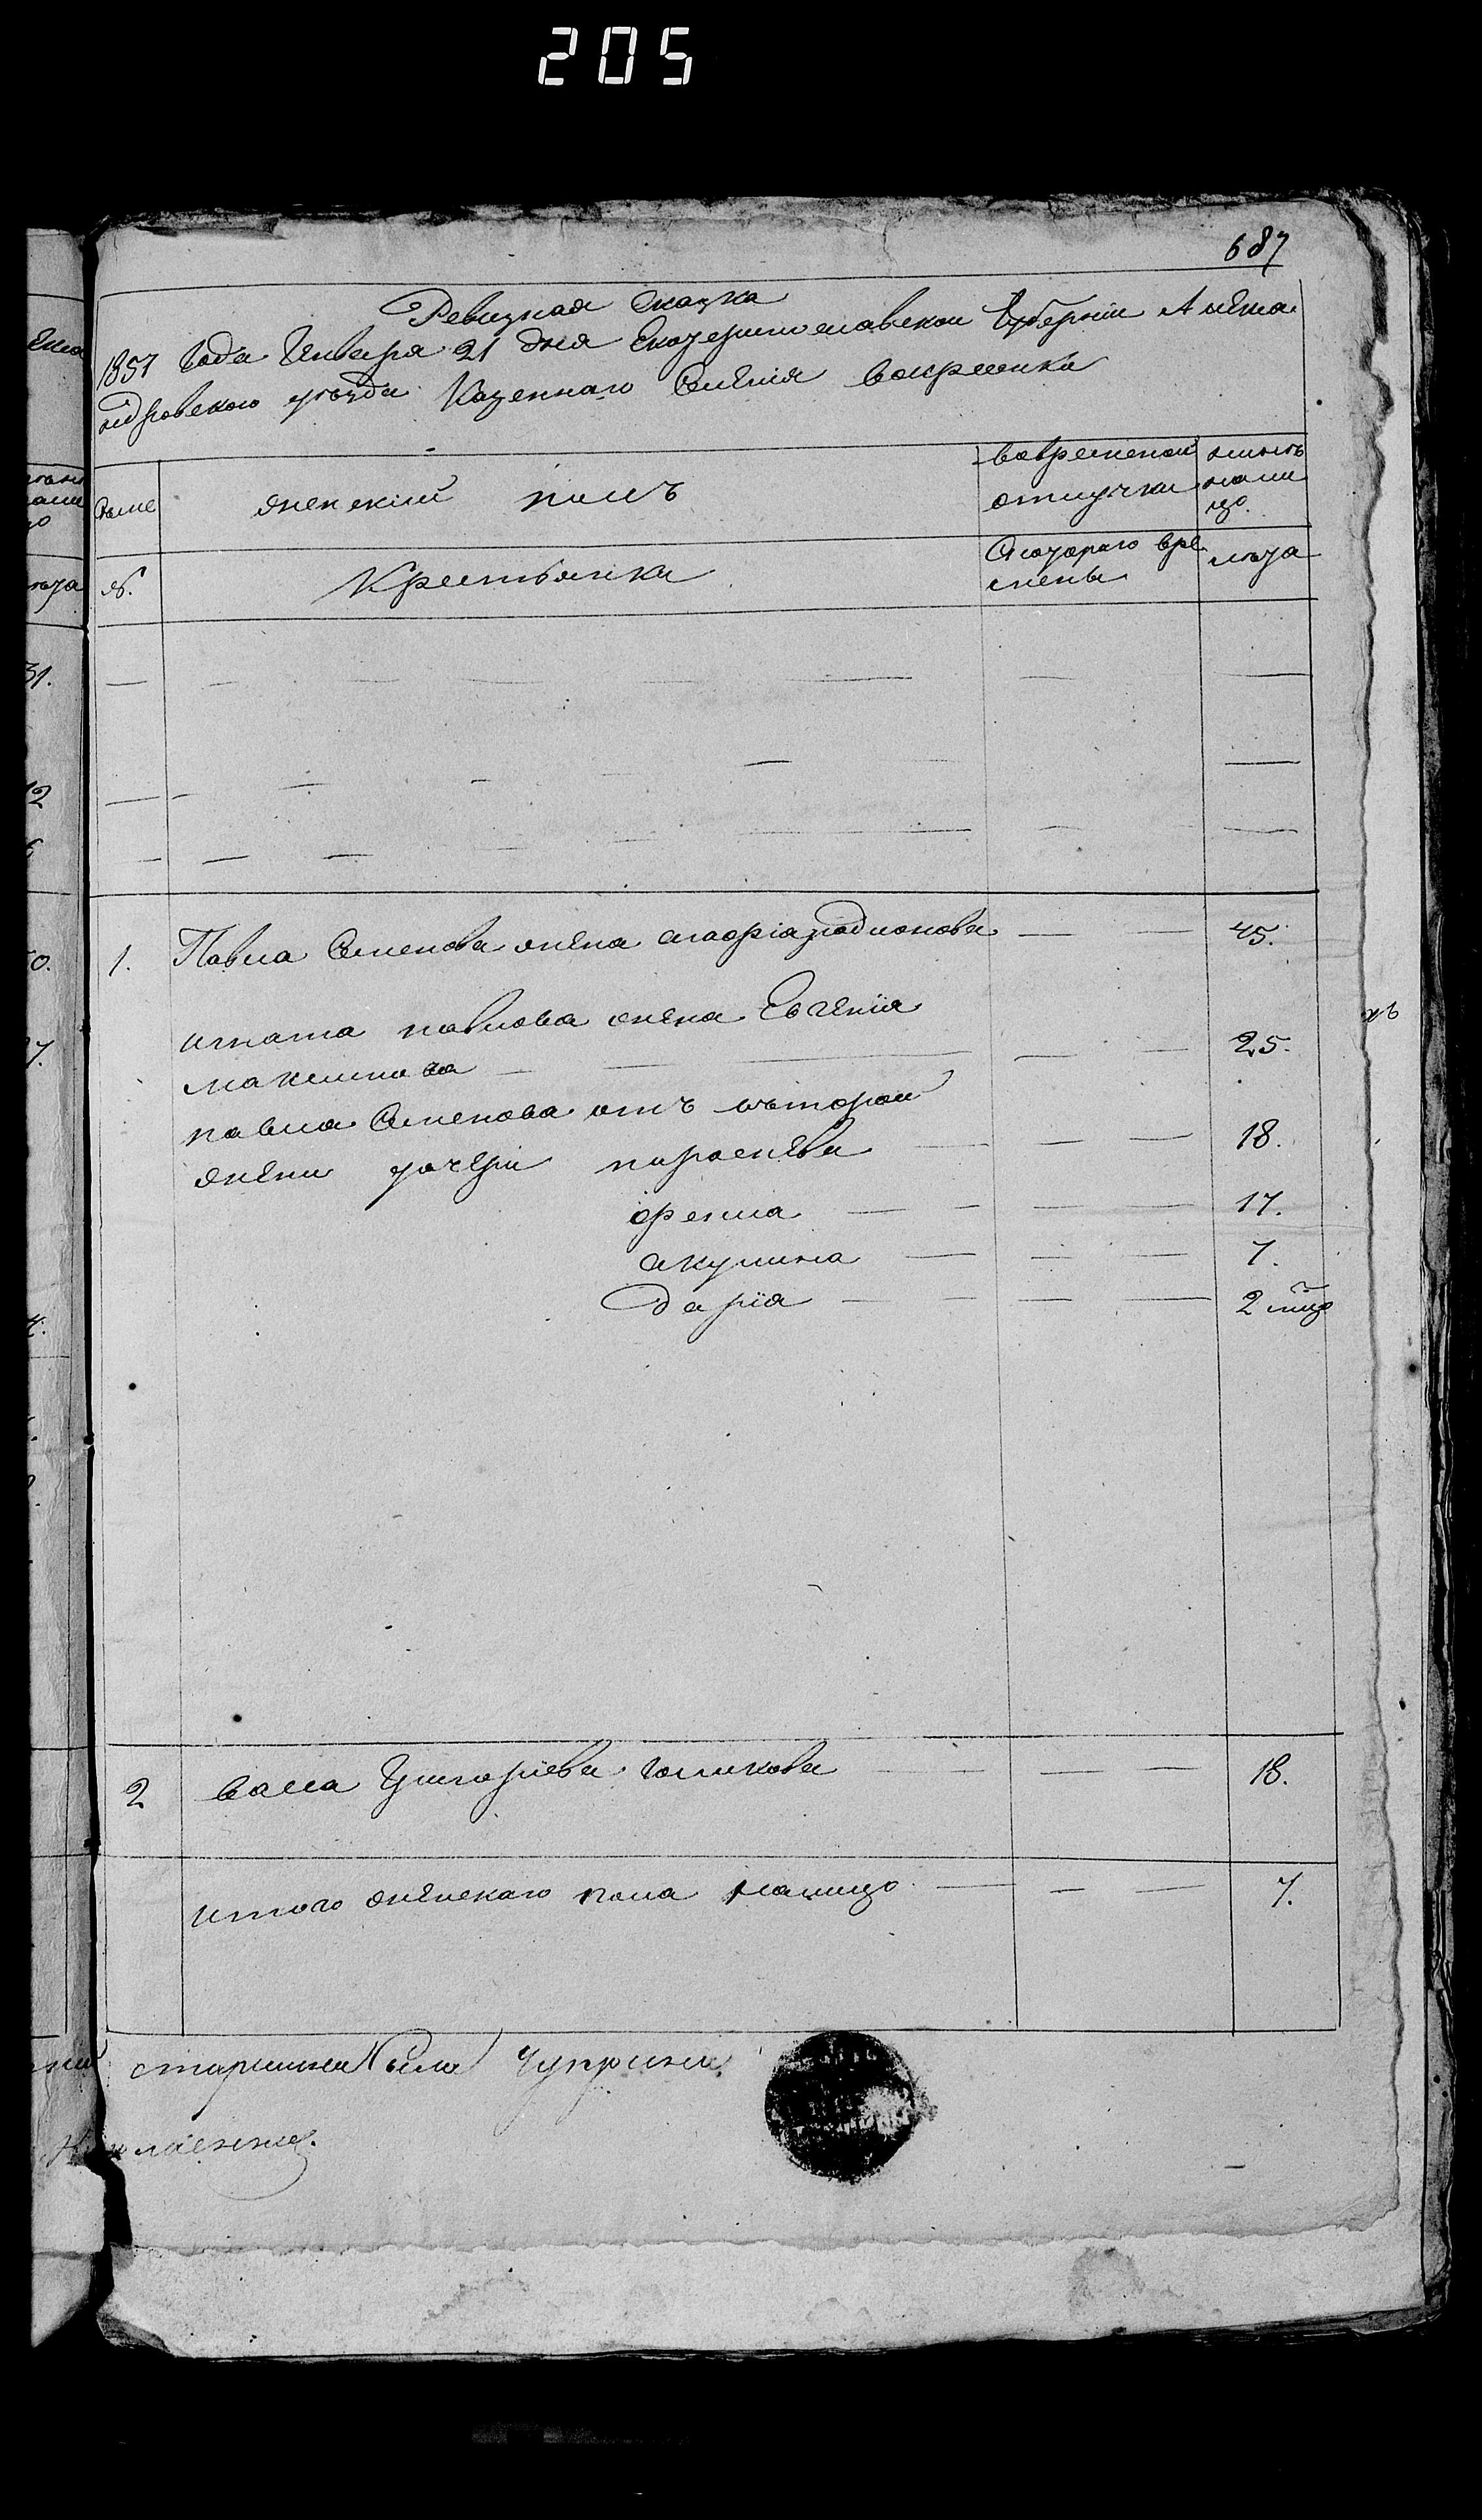 205
687
Ревизная сказка
1857 года Генваря 21 дня Екатеринославской Губерніи Алекса
ндровскаго уезда Казеннаго Селенія
женскій полъ
вовременой
отлучки
ныне
нали
цо
№.
Крестьянки
Скотораго вре
мены
лета
1. Павла Семенова жена марія родионова 45.
игната павлова жена Евгенія
максимова 25.
павла Семенова отъ въторой
жены дочери параскева 18.
орена 17.
акулина 7.
дарія 2 мцо
2 васса Григоріева голикова 18.
итого женскаго пола налицо 7.
старшина Чуприна